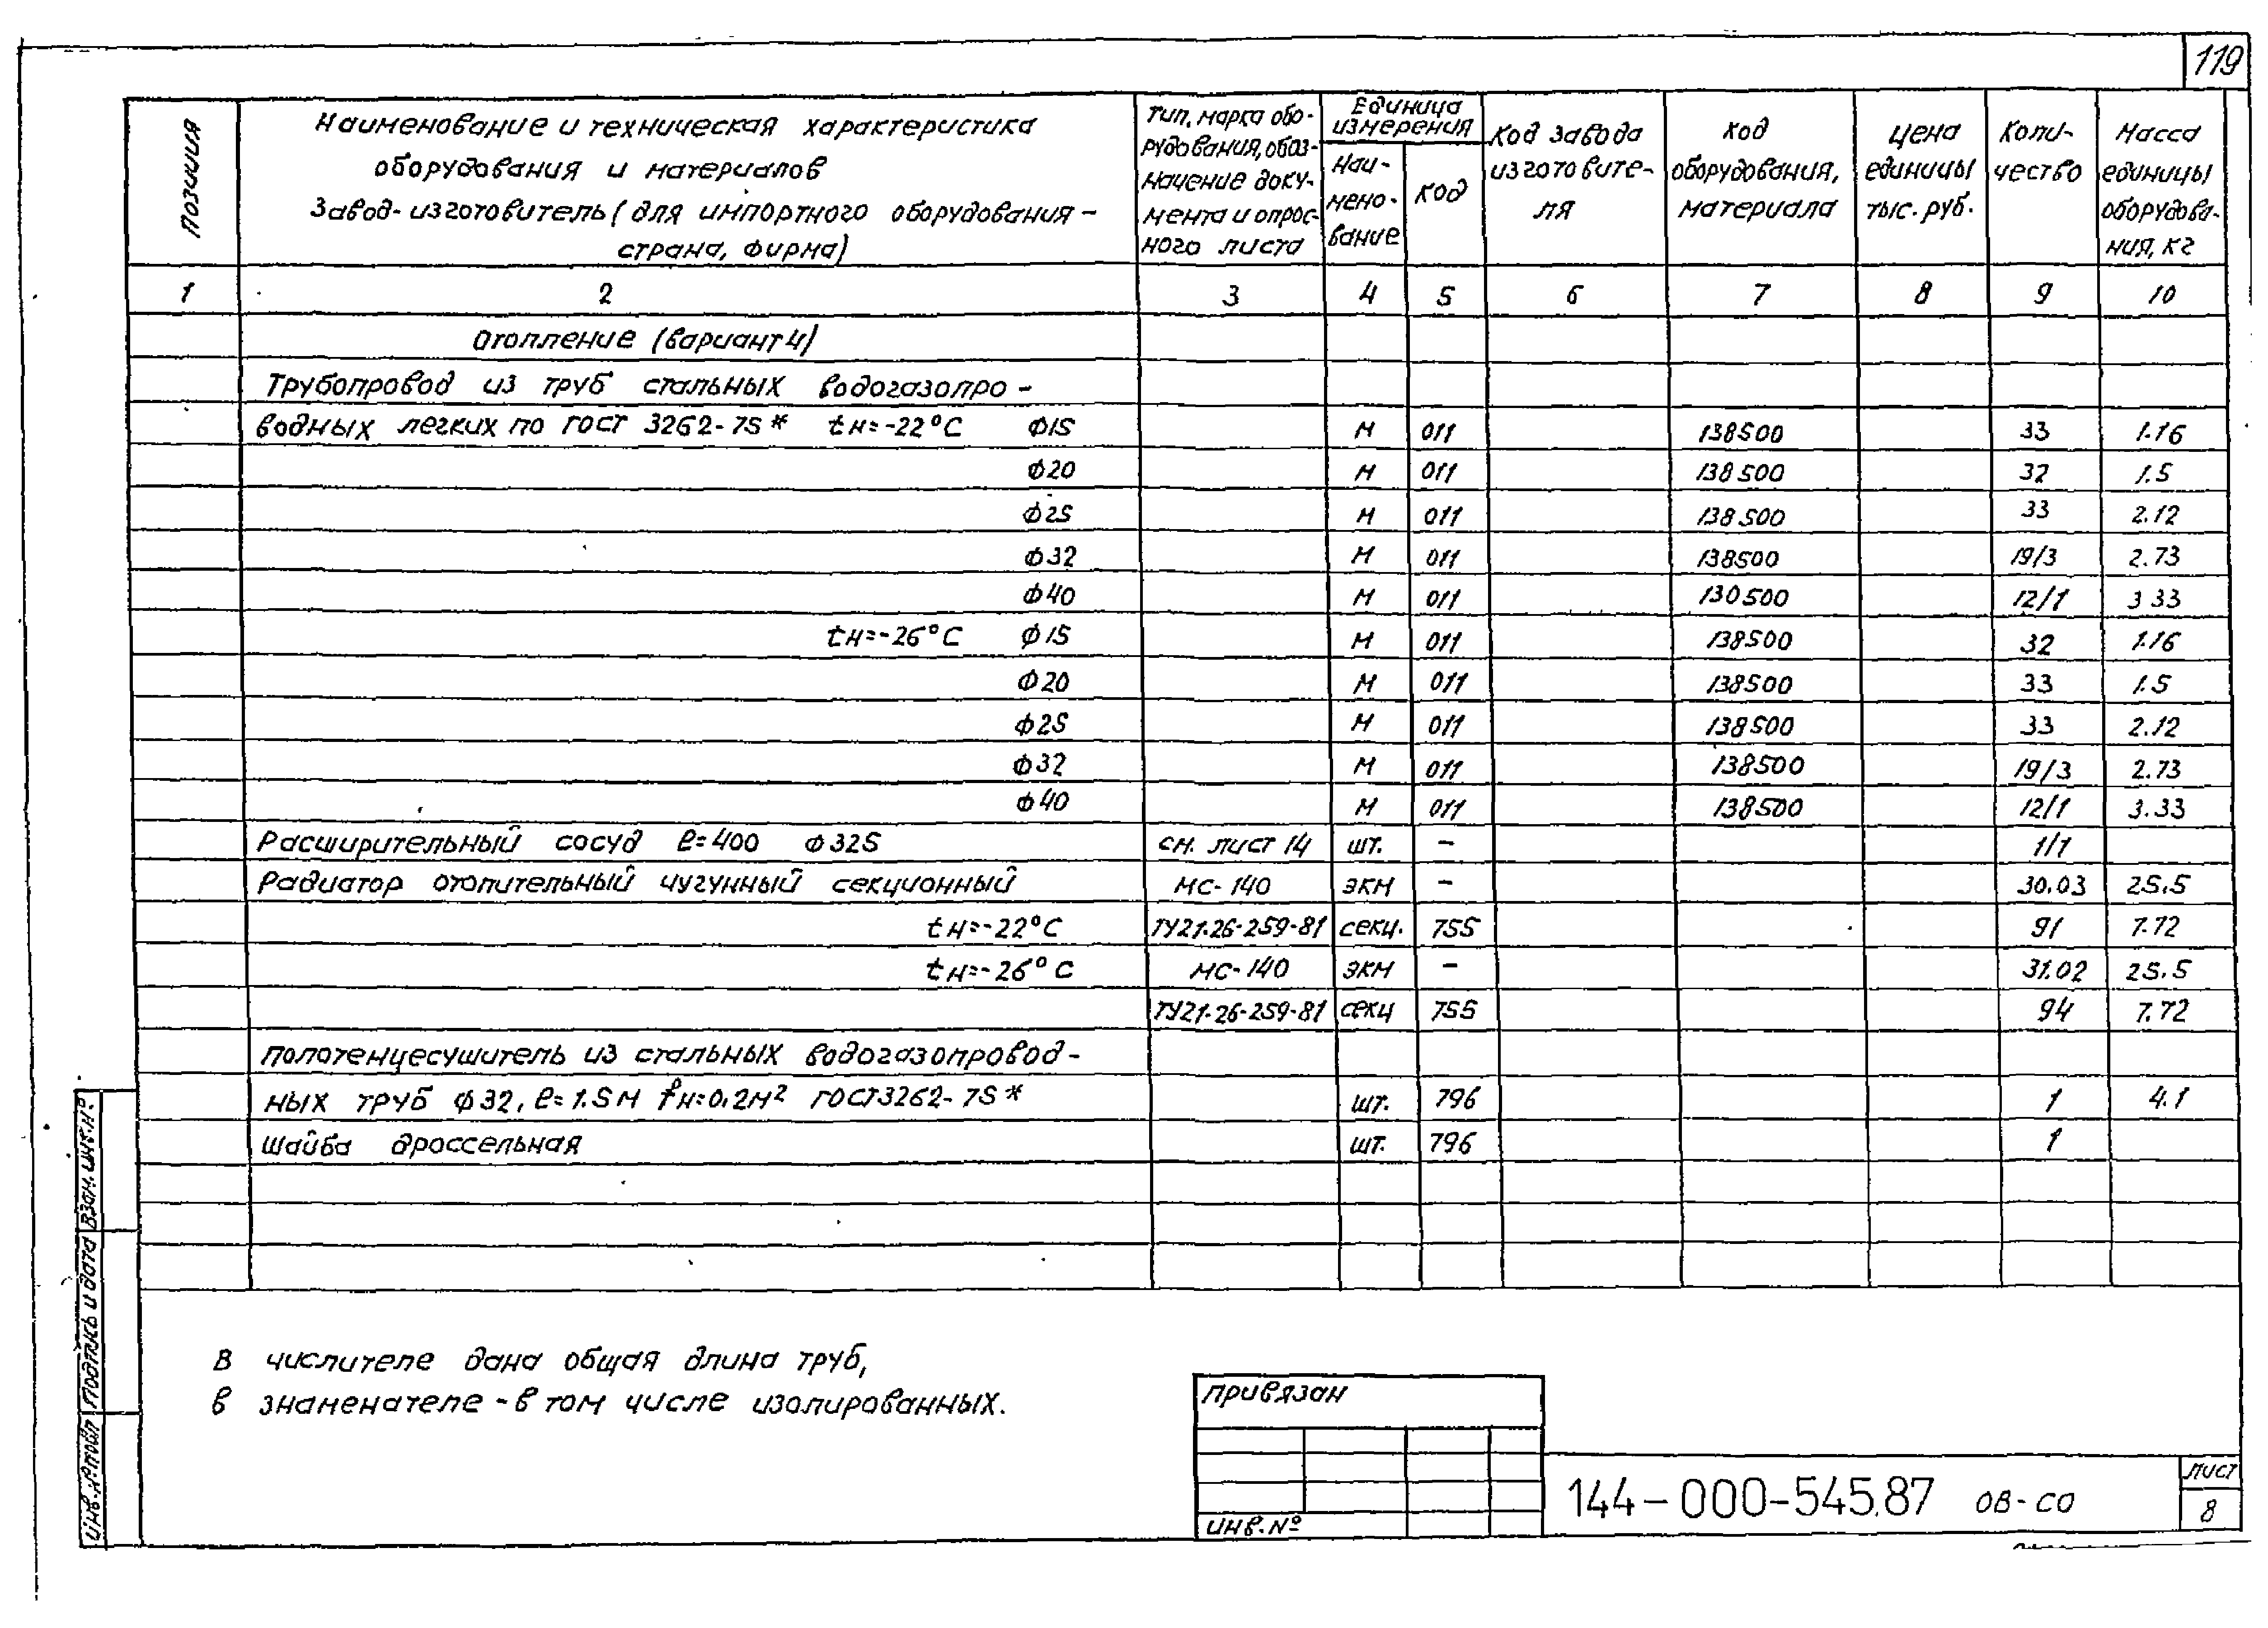 119
Позиция
Наименование и техническая характеристика
оборудования и материалов
Завод-изготовитель (для импортного оборудования -
страна, фирма)
Тип, марка обо-
рудования, обоз-
начение доку-
мента и опрос-
ного листа
Единица
измерения
Наи-
мено-
вание
код
код завода
изготовите-
ля
код
оборудования,
материала
цена
единицы
тыс. руб.
Коли-
чество
Масса
единицы
оборудова-
ния, кг
1 2 3 4 5 6 7 8 9 10
Отопление (вариант 4)
Трубопровод из труб стальных водогазопро-
водных легких по ГОСТ 3262-75* tн=-22°C ф15 м 011 138500 33 1.16
ф20 м 011 138500 32 1.5
ф25 м 011 138500 33 2.12
ф32 м 011 138500 19/3 2.73
ф40 м 011 130500 12/1 3 33
tн=-26°C ф15 м 011 138500 32 1.16
ф20 м 011 138500 33 1.5
ф25 м 011 138500 33 2.12
ф32 м 011 138500 19/3 2.73
ф40 м 011 138500 12/1 3.33
Расширительный сосуд ℓ=400 ф325 см. лист 14 шт. - 1/1
Радиатор отопительный чугунный секционный МС-140 экм - 30.03 25.5
tн=-22°C ТУ21-26-259-81 секц. 755 91 7.72
tн=-26°C МС-140 экм - 31.02 25.5
ТУ21-26-259-81 секц 755 94 7.72
полотенцесушитель из стальных водогазопровод-
ных труб ф32, ℓ=1.5м fн=0.2м² ГОСТ3262-75* шт. 796 1 4.1
шайба дроссельная шт. 796 1
В числителе дана общая длина труб,
в знаменателе - в том числе изолированных.
привязан
инв.№
144-000-545.87 ОВ-СО
лист
8
Взам. инв.№
Подпись и дата
Инв.№подл